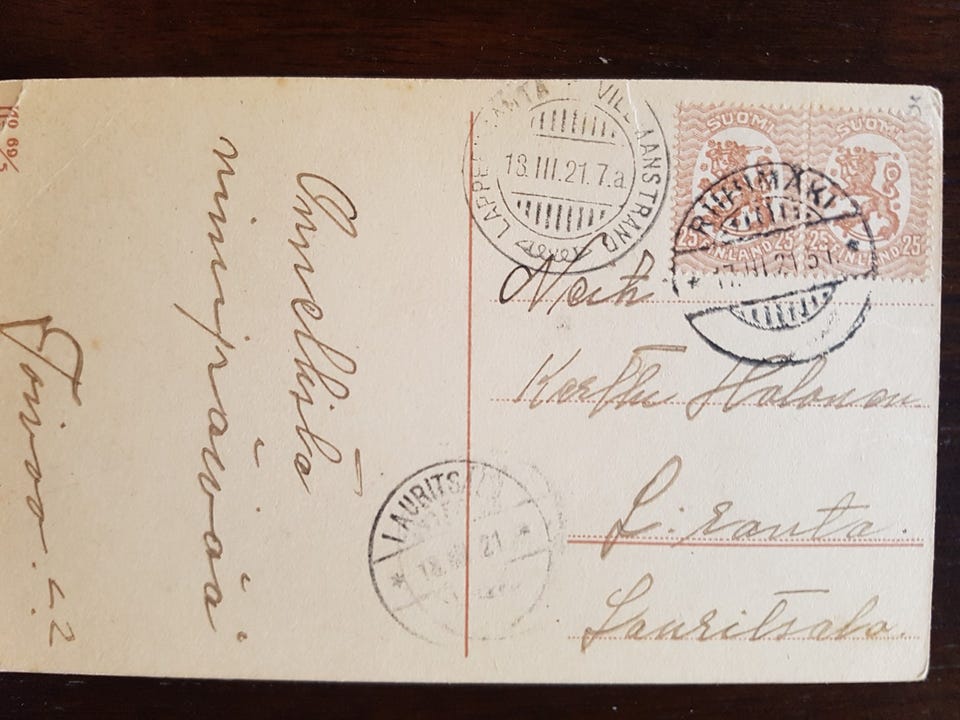 Onnellista
nimipäivää
Toivoo.
LAPPEENRANTA VILLMANSTRAND
18.III.21.7.a
SUOMI SUOMI
25 FINLAND 25 25 FINLAND 25
RIIHIMÄKI
III.21.
Neiti
Kerttu Holonen.
L:ranta.
Lauritsala.
LAURITSALA
18.III.21